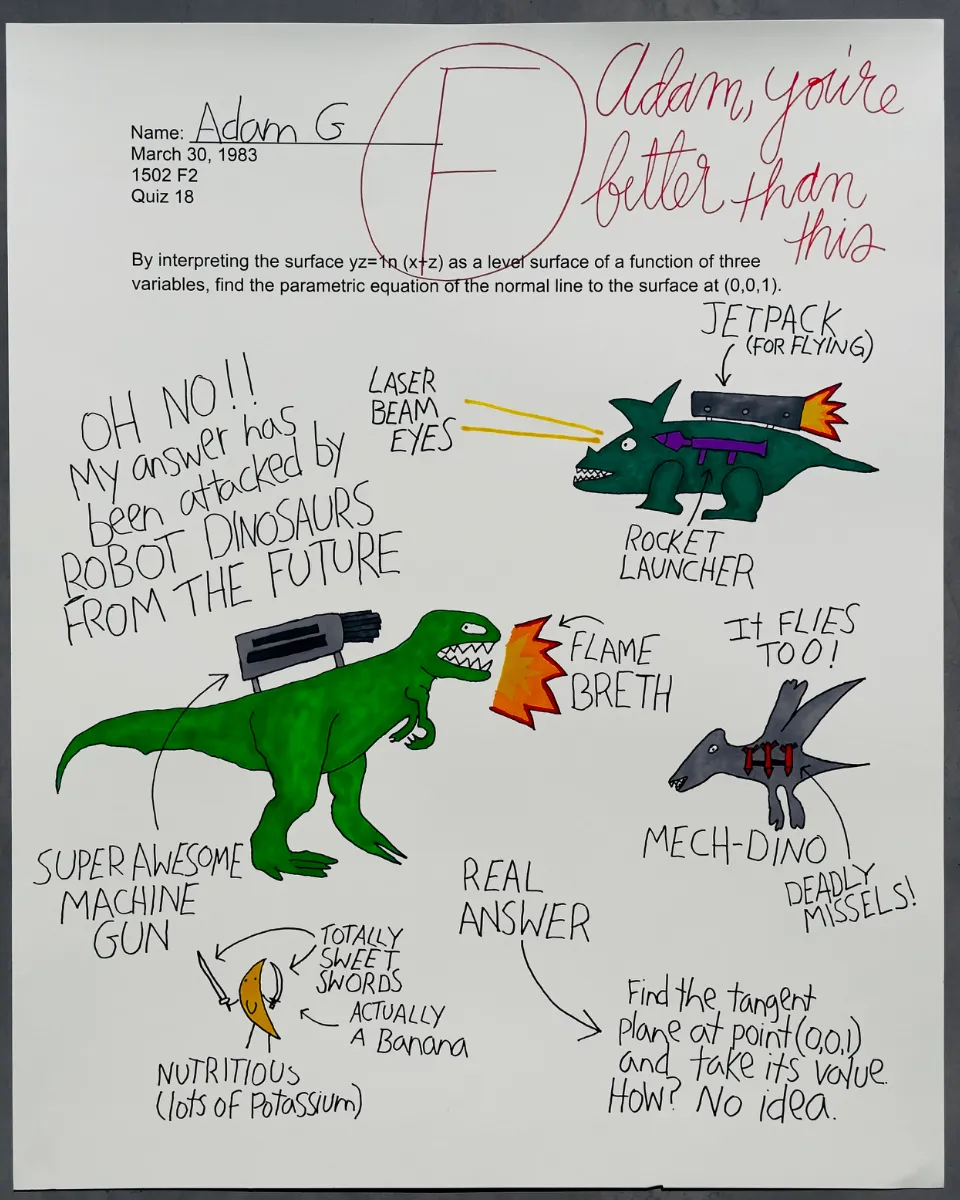 Name: Adam G
March 30, 1983
1502 F2
Quiz 18
F
Adam, you're
better than
this
By interpreting the surface yz=1n (x+z) as a level surface of a function of three
variables, find the parametric equation of the normal line to the surface at (0,0,1).
JETPACK
(FOR FLYING)
LASER
BEAM
EYES
OH NO!!
My answer has
been attacked by
ROBOT DINOSAURS
FROM THE FUTURE
ROCKET
LAUNCHER
FLAME
BRETH
It FLIES
TOO!
SUPER AWESOME
MACHINE
GUN
MECH-DINO
DEADLY
MISSELS!
REAL
ANSWER
TOTALLY
SWEET
SWORDS
ACTUALLY
A Banana
NUTRITIOUS
(lots of Potassium)
Find the tangent
plane at point (0,0,1)
and take its value.
How? No idea.